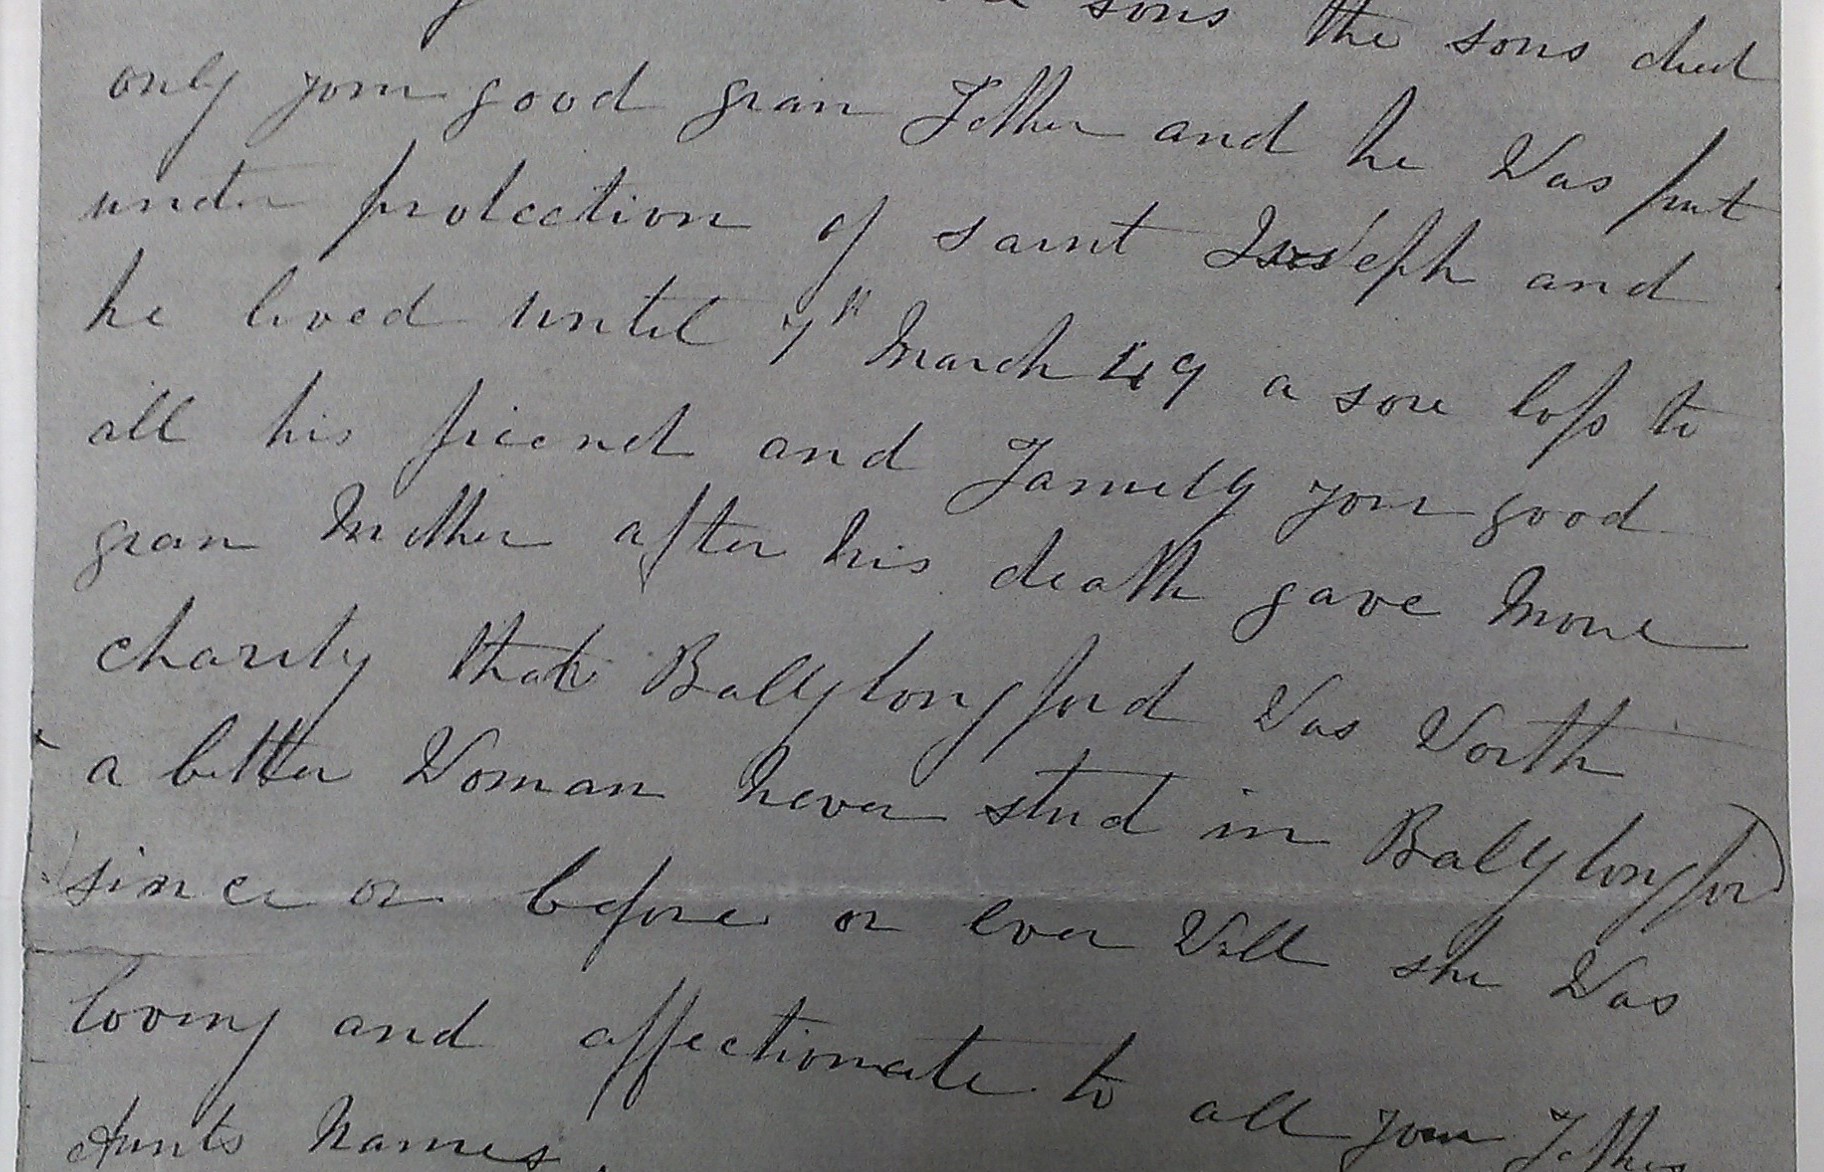 sons the sons died
only your good gran Father and he Was put
under protection of saint Joseph and
he lived until 7th March 49 a sore loss to
all his friend and Family your good
gran Mother after his death gave More
charity than Ballylongford Was Worth
a better Woman never stud in Ballylongford
since or before or ever Will she Was
loving and affectionate to all your Father
Aunts Names.